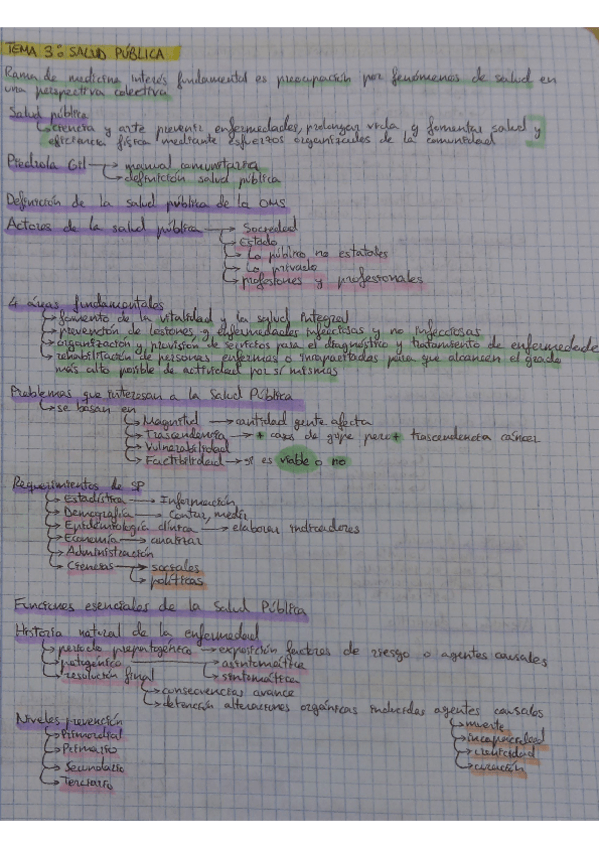 TEMA 3: SALUD PÚBLICA
Rama de medicina interés fundamental es preocupación por fenómenos de salud en
una perspectiva colectiva
Salud pública
ciencia y arte prevenir enfermedades, prolongar vida y fomentar salud y
eficiencia física mediante esfuerzos organizados de la comunidad
Piedrola Gil → manual comunitaria
→ definición salud pública
Definición de la salud pública de la OMS
Actores de la salud pública → Sociedad
→ Estado
→ Lo público no estatales
→ Lo privado
→ profesiones y profesionales
4 áreas fundamentales
→ fomento de la vitalidad y la salud integral
→ prevención de lesiones y enfermedades infecciosas y no infecciosas
→ organización y provisión de servicios para el diagnóstico y tratamiento de enfermedade
→ rehabilitación de personas enfermas o incapacitadas para que alcancen el grado
más alto posible de actividad por sí mismas
Problemas que interesan a la Salud Pública
→ se basan en
→ Magnitud → cantidad gente afecta
→ Trascendencia → + casos de gripe pero + trascendencia cáncer
→ Vulnerabilidad
→ Factibilidad → si es viable o no
Requerimientos de SP
→ Estadística → Información
→ Demografía → Contar, medir
→ Epidemiología clínica → elaborar indicadores
→ Economía → analizar
→ Administración
→ Ciencias → sociales
→ políticas
Funciones esenciales de la Salud Pública
Historia natural de la enfermedad
→ periodo prepatogénico → exposición factores de riesgo o agentes causales
→ patogénico → asintomática
→ resolución final → sintomática
→ consecuencias avance
→ detención alteraciones orgánicas inducidas agentes causales
Niveles prevención → muerte
→ Primordial → incapacidad
→ Primario → cronicidad
→ Secundario → curación
→ Terciario